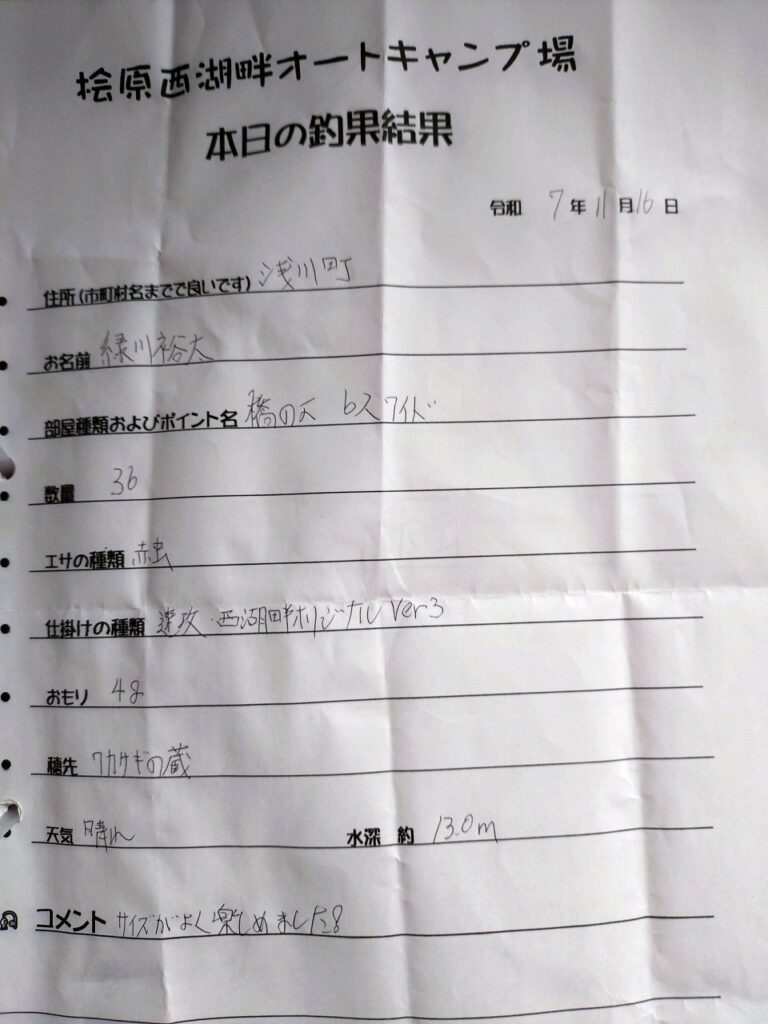 桧原西湖畔オートキャンプ場
本日の釣果結果
令和 7年11月16日
住所(市町村名までで良いです) 浅川町
お名前 緑川裕太
部屋種類およびポイント名 橋の下 bスワイド
数量 36
エサの種類 赤虫
仕掛けの種類 速攻・西湖畔オリジナル ver3
おもり 4g
穂先 ワカサギの蔵
天気 晴れ 水深 約 13.0m
コメント サイズがよく楽しめました!